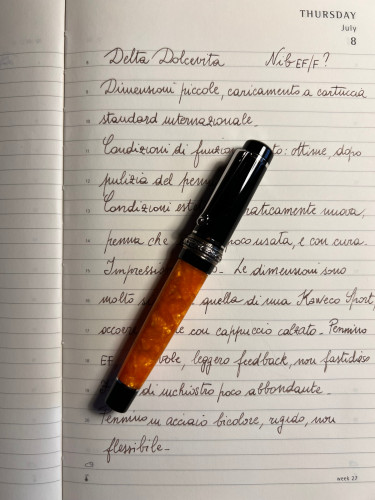 THURSDAY
July
8
Delta Dolcevita Nib EF/F?
Dimensioni piccole, caricamento a cartuccia
standard internazionale.
Condizioni di : ottime, dopo
pulizia del
Condizioni praticamente nuova,
penna che poco usata, e con cura.
Le dimensioni sono
molto quella di una Kaweco Sport,
con cappuccio calzato. Pennino
EF leggero feedback, non fastidioso
di inchiostro poco abbondante.
Pennino in acciaio bicolore, rigido, non
flessibile.
week 27